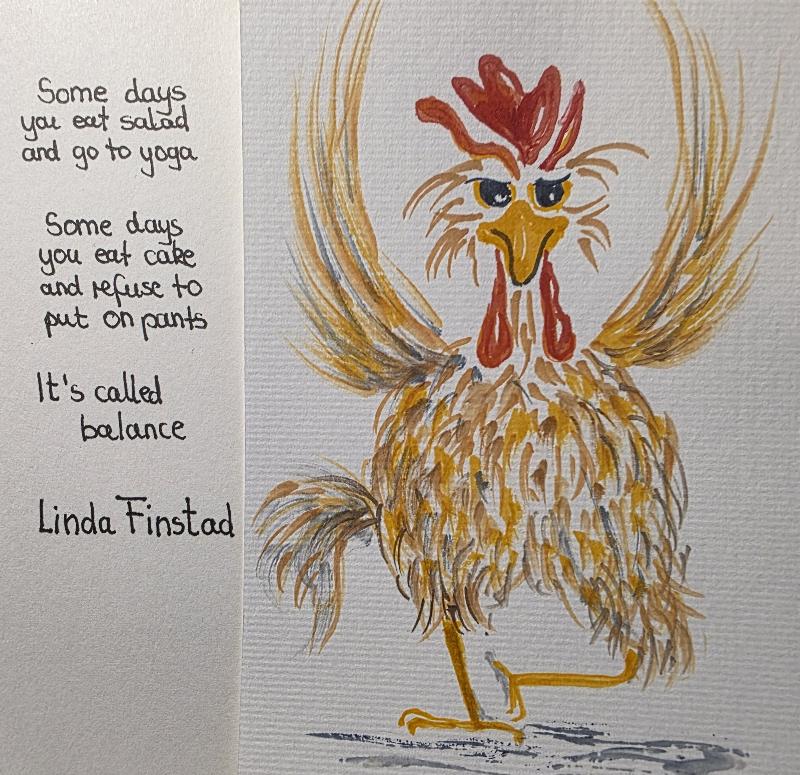 Some days
you eat salad
and go to yoga
Some days
you eat cake
and refuse to
put on pants
It's called
balance
Linda Finstad